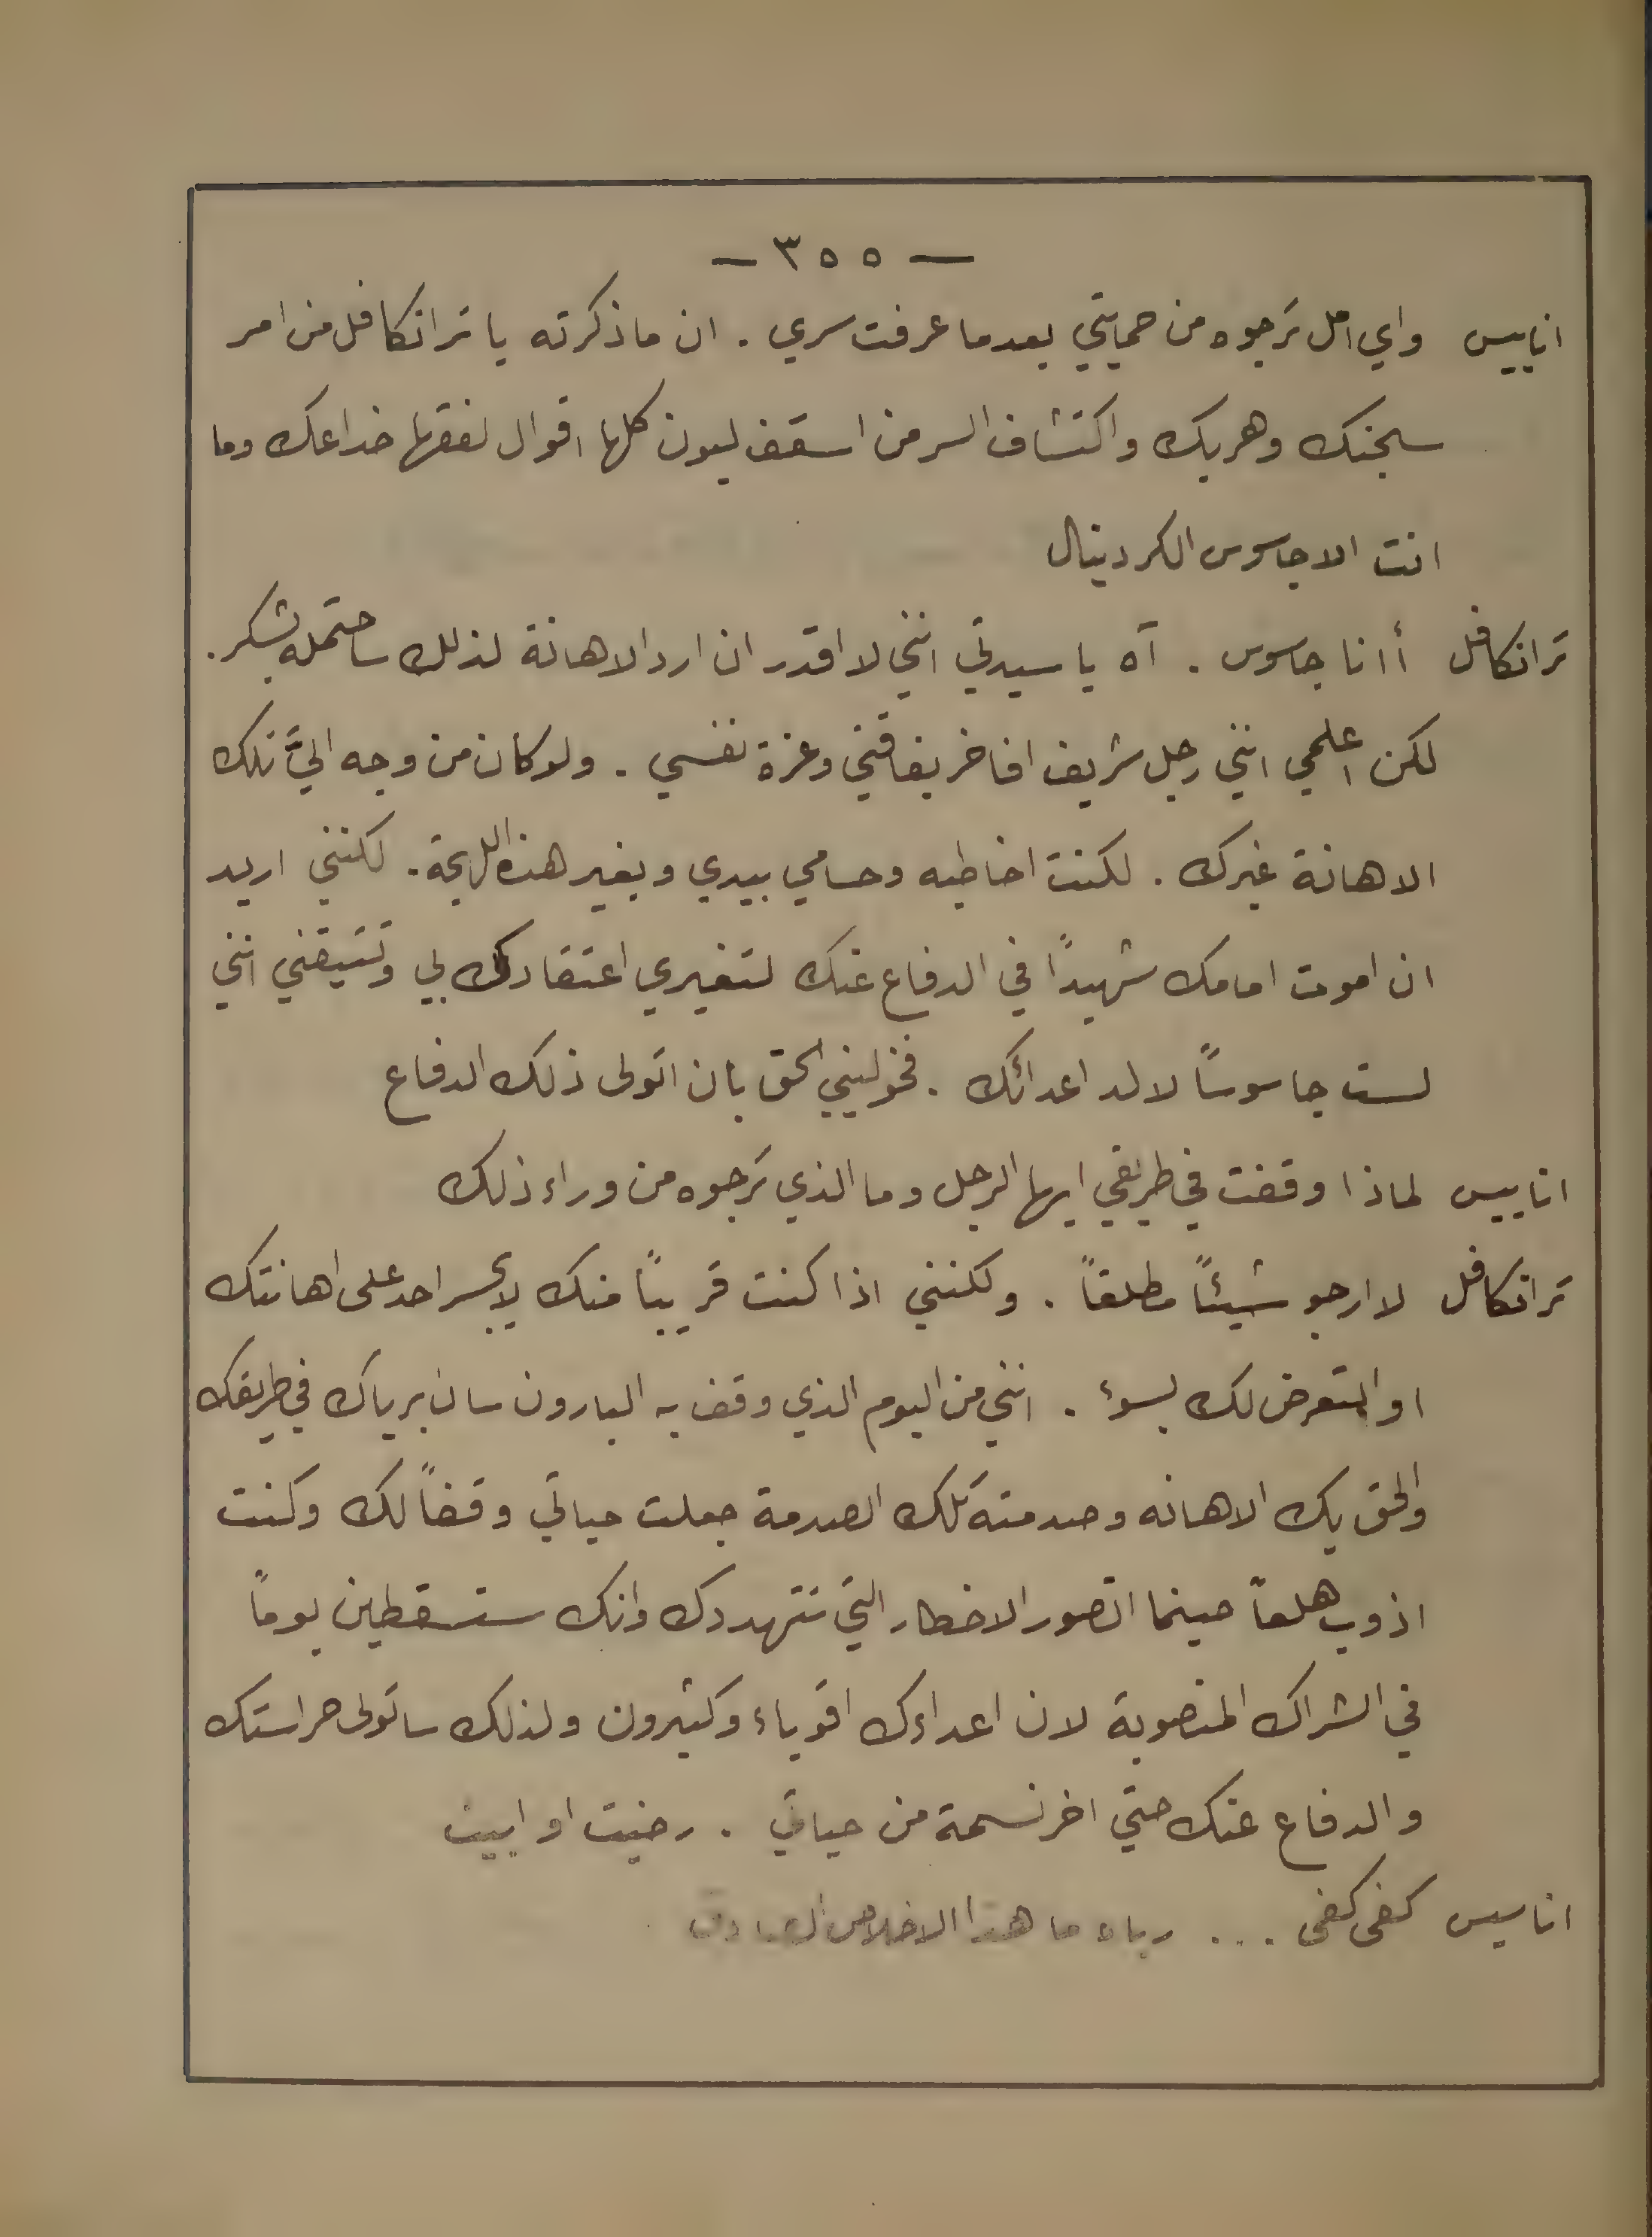 — ٣٥٥ —
اناييس واي امل ترجوه من حمايتي بعدما عرفت سري . ان ما ذكرته يا ترانكافل من امر
سجنك وهربك واكتشاف السر من اسقف ليون كلها اقوال لفقها خداعك وما
انت الا جاسوس الكردينال
ترانكافل أانا جاسوس . آه يا سيدتي انني لا اقدر ان ارد الاهانة لذلك ساحتمله بشكر .
لكن اعلمي انني رجل شريف افاخر بفاقتي وعزة نفسي . ولو كان من وجه اليَّ تلك
الاهانة غيرك . لكنت اخاطبه وحسامي بيدي وبغير هذه اللهجة . لكنني اريد
ان اموت امامك شهيداً في الدفاع عنك لتغيري اعتقادك بي وتتيقني انني
لست جاسوساً لالد اعدائك . فخوليني الحق بأن اتولى ذلك الدفاع
اناييس لماذا وقفت في طريقي ايها الرجل وما الذي ترجوه من وراء ذلك
ترانكافل لا ارجو شيئاً مطلقاً . ولكنني اذا كنت قريباً منك لا يجسر احد على اهانتك
او التعرض لك بسوء . انني من اليوم الذي وقف به البارون سان برياك في طريقك
والحق بك الاهانه وصدمته تلك الصدمة جعلت حياتي وقفاً لك وكنت
اذوب هلعاً حينما اتصور الاخطار التي تتهددك وانك ستسقطين يوماً
في الشراك المنصوبة لان اعداءك اقوياء وكثيرون ولذلك ساتولى حراستك
والدفاع عنك حتي اخر نسمة من حياتي . رضيت او ابيت
اناييس كفى كفى ... رباه ما هذا الاخلاص الصادق